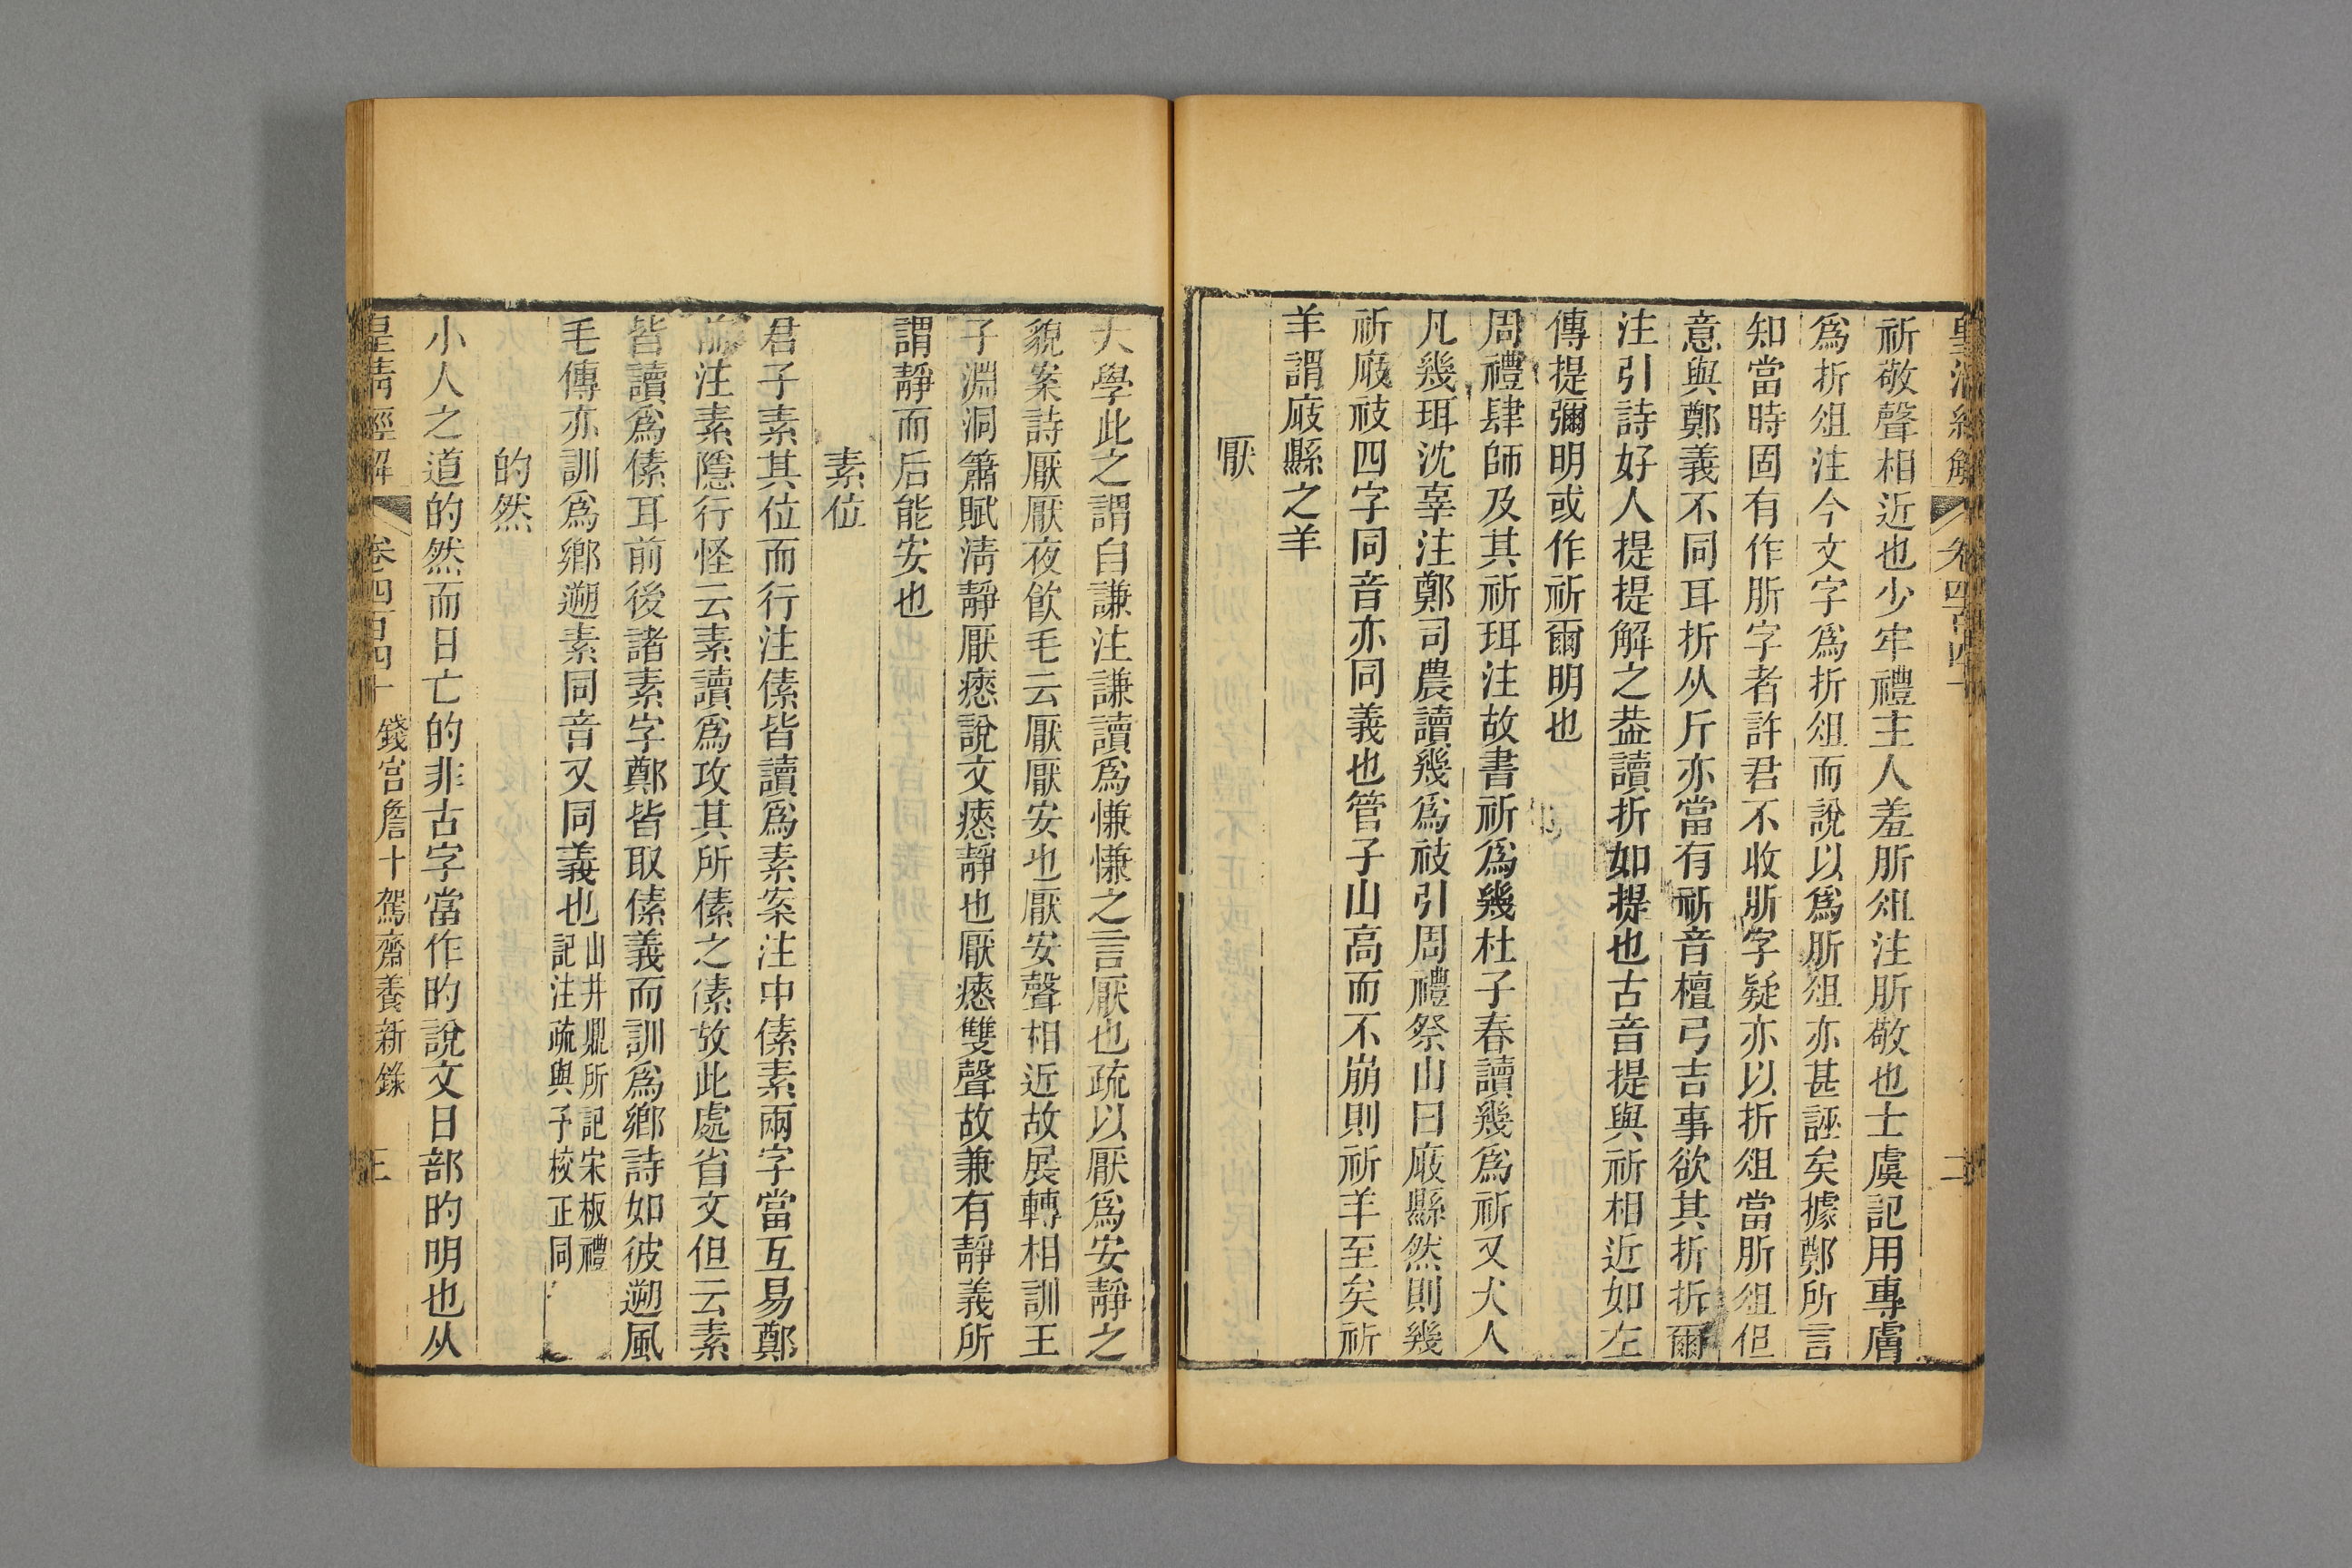 皇清經解 卷四百四十 二
祈敬聲相近也少牢禮主人羞肵俎注肵敬也士虞記用專膚
爲折俎注今文字爲折俎而說以爲肵俎亦甚誣矣據鄭所言
知當時固有作肵字者許君不收肵字疑亦以折俎當肵俎但
意與鄭義不同耳折从斤亦當有祈音檀弓吉事欲其折折爾
注引詩好人提提解之葢讀折如提也古音提與祈相近如左
傳提彌明或作祈爾明也
周禮肆師及其祈珥注故書祈爲幾杜子春讀幾爲祈又犬人
凡幾珥沈辜注鄭司農讀幾爲祓引周禮祭山曰庪縣然則幾
祈庪祓四字同音亦同義也管子山高而不崩則祈羊至矣祈
羊謂庪縣之羊
厭
大學此之謂自謙注謙讀爲慊慊之言厭也疏以厭爲安靜之
貌案詩厭厭夜飲毛云厭厭安也厭安聲相近故展轉相訓王
子淵洞簫賦清靜厭㥷說文㥷靜也厭㥷雙聲故兼有靜義所
謂靜而后能安也
素位
君子素其位而行注傃皆讀爲素案注中傃素兩字當互易鄭
前注素隱行怪云素讀爲攻其所傃之傃故此處省文但云素
皆讀爲傃耳前後諸素字鄭皆取傃義而訓爲鄉詩如彼遡風
毛傳亦訓爲鄉遡素同音又同義也山井鼎所記宋板禮
記注疏與予校正同
的然
小人之道的然而日亡的非古字當作旳說文日部旳明也从
皇清經解 卷四百四十 錢宮詹十駕齋養新錄 三